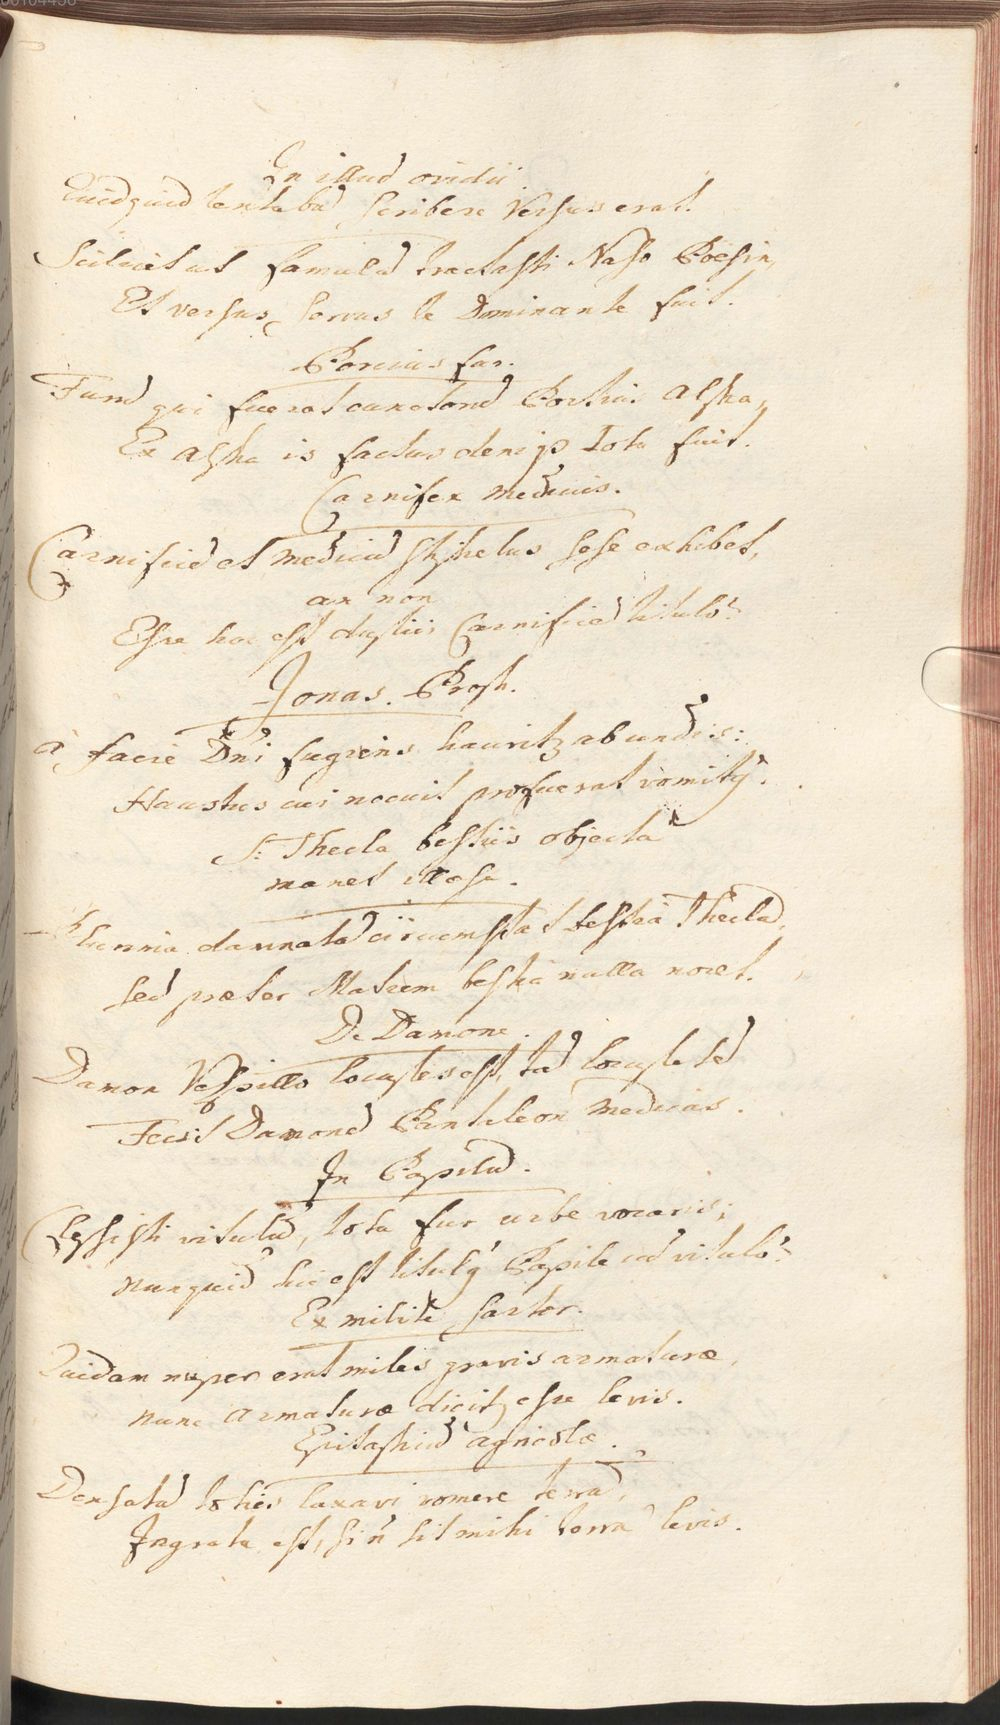 In illud ovidii.
Quidquid tentabã scribere Versus erat.
Scilicet ut famulã tractasti Naso Poesin,
Et versus servus te Dominante fuit.
Porcius fur.
Furũ qui fuerat cunctorũ Portius Alpha,
Ex Alpha is factus deniqз Iota fuit.
Carnifex medicus.
Carnificẽ et medicũ sese exhibet,
an non
Esse hoc est Carnificẽ titulo?
Jonas. Proph.
à facie Dñi fugiens hauritur ab undis:
Haustus cui nocuit profuerat vomitꝰ.
S: Thecla bestiis objecta
manet illæsa.
damnatã circumstat bestia Theclã,
sed præter Matrem bestia nulla nocet.
De Damone.
Damon Vespillo locuples est, tã locuplete
Fecit Damonẽ Pantaleon Medicus.
In Papilũ.
Gessisti vitulũ, tota fur urbe vocaris;
nunquid hic est titulꝰ Papile cũ vitulo?
Ex milite sartor.
Quidam nuper erat miles gravis armaturæ,
nunc armaturæ dicitur esse levis.
Epitaphiũ agricolæ.
Densatã toties laxavi vomere terrã,
Ingrata est, si ñ sit mihi terra levis.